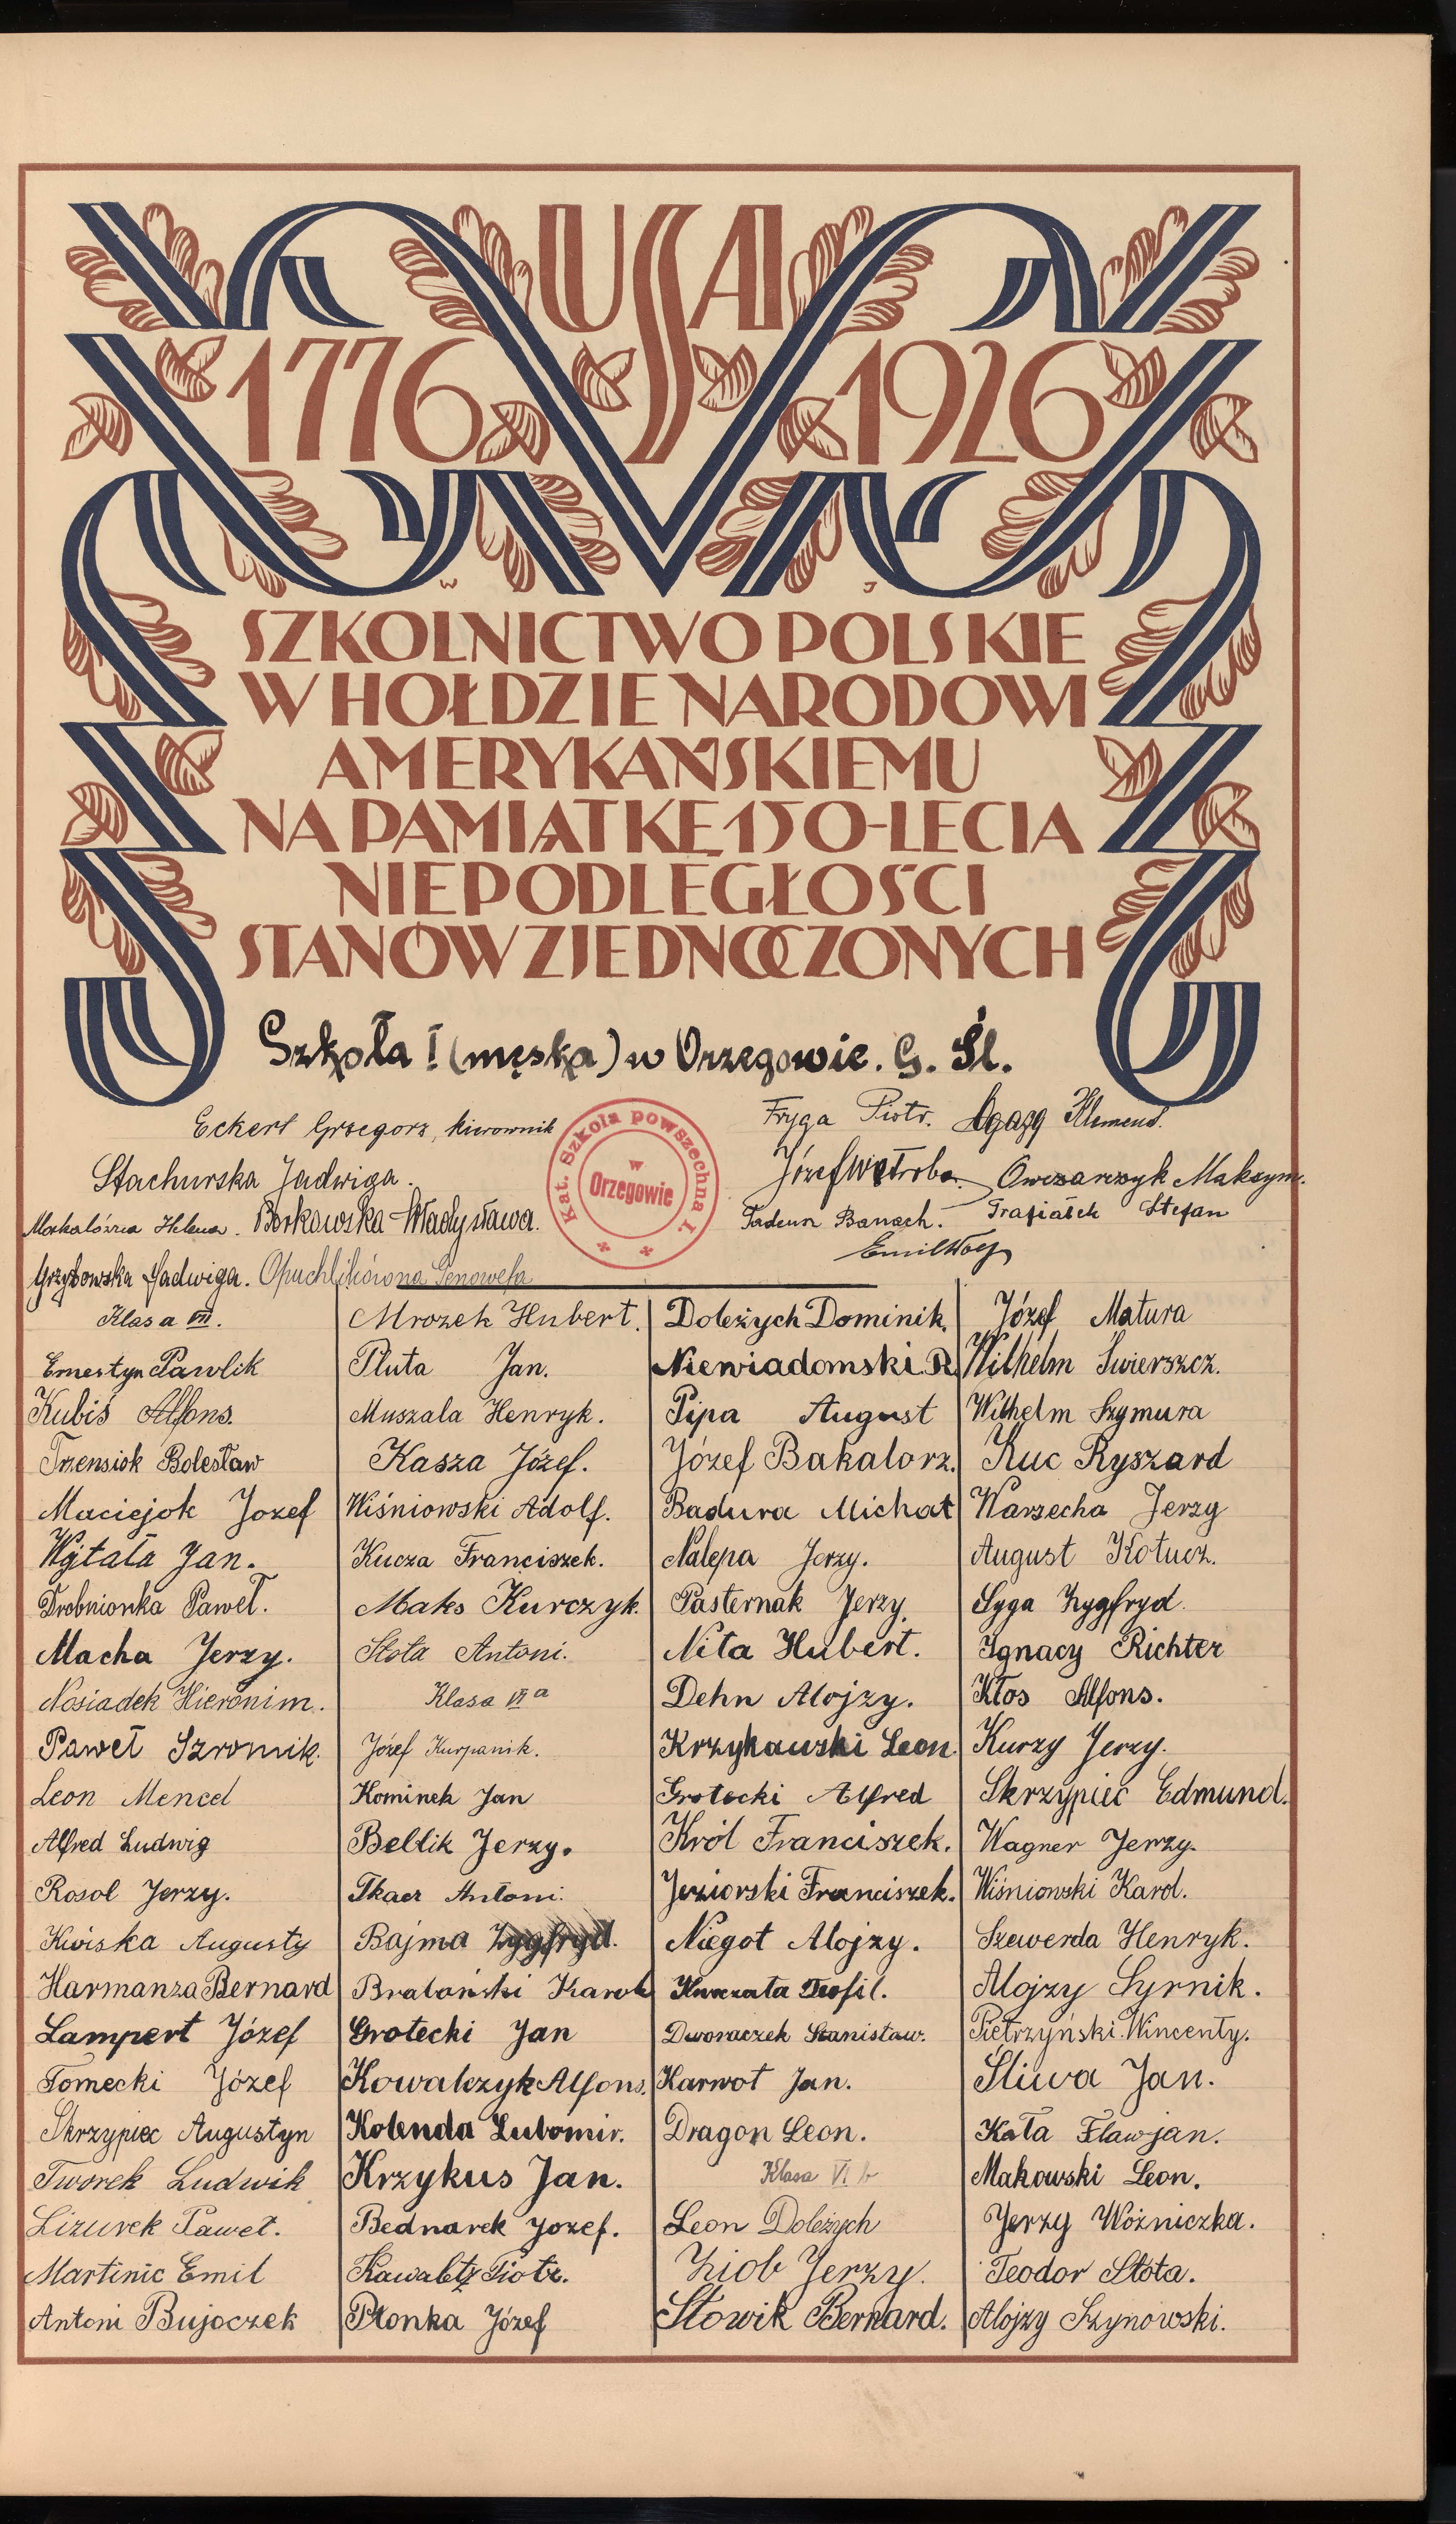 USA
1776 1926
W J
SZKOLNICTWO POLSKIE
W HOŁDZIE NARODOWI
AMERYKAŃSKIEMU
NA PAMIĄTKĘ 150-LECIA
NIEPODLEGŁOŚCI
STANÓW ZJEDNOCZONYCH
Szkoła I (męska) w Orzegowie. G. Śl.
Eckert Grzegorz, kierownik
Stachurska Jadwiga.
Helena. Borkowska Władysława.
Grzybowska Jadwiga. Opuchlikówna Genowefa
Kat. Szkoła powszechna I.
w
Orzegowie
Fryga Piotr. Klemens.
Józef Wątroba. Owczarczyk Maksym.
Tadeusz Banach. Stefan
Emil
Klasa VII.
Ernestyn Pawlik
Kubiś Alfons.
Trzensiok Bolesław
Maciejok Jozef
Wÿtała Jan.
Drobnionka Paweł.
Macha Jerzy.
Nosiadek Hieronim.
Paweł Szromik.
Leon Mencel
Alfred Ludwig
Rosol Jerzy.
Kwiska Augusty
Harmanza Bernard
Lampert Józef
Tomecki Józef
Skrzypiec Augustyn
Tworek Ludwik
Lizurek Paweł.
Martinic Emil
Antoni Bujoczek
Mrozek Hubert.
Pluta Jan.
Muszala Henryk.
Kasza Józef.
Wiśniowski Adolf.
Kucza Franciszek.
Maks Kurczyk.
Stota Antoni.
Klasa VI a
Józef Kurpanik.
Kominek Jan
Bellik Jerzy.
Tkacz Antoni.
Bajma Zygfryd.
Bratański Karol
Grotecki Jan
Kowalczyk Alfons.
Kolenda Lubomir.
Krzykus Jan.
Bednarek Jozef.
Kawaletz Piotr.
Płonka Józef
Doleżych Dominik.
Niewiadomski R.
Pipa August
Józef Bakalorz.
Badura Michał
Nalepa Jerzy.
Pasternak Jerzy.
Nita Hubert.
Dehn Alojzy.
Krzykawski Leon.
Grotecki Alfred
Król Franciszek.
Jeziorski Franciszek.
Niegot Alojzy.
Kurzata Teofil.
Dworaczek Stanisław.
Karwot Jan.
Dragon Leon.
Klasa VI b
Leon Doleżych
Ziob Jerzy.
Słowik Bernard.
Józef Matura
Wilhelm Świerszcz.
Wilhelm Szymura
Kuc Ryszard
Warzecha Jerzy
August Kołucz.
Syga Zygfryd.
Ignacy Richter
Kłos Alfons.
Kurzy Jerzy.
Skrzypiec Edmund.
Wagner Jerzy.
Wiśniowski Karol.
Szewerda Henryk.
Alojzy Syrnik.
Pietrzyński Wincenty.
Śliwa Jan.
Kała Flawjan.
Makowski Leon.
Jerzy Woźniczka.
Teodor Stota.
Alojzy Szynowski.